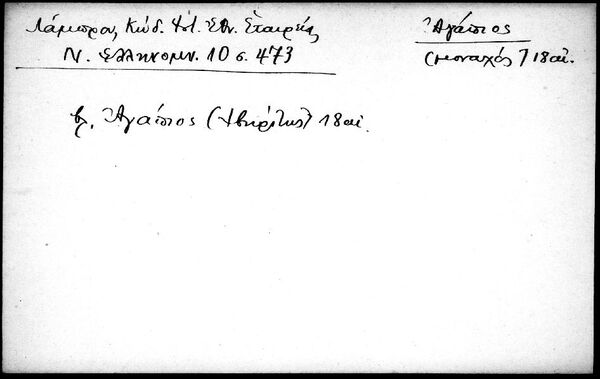 Λάμπρου, Κώδ. Ἱστ. Ἐθν. Ἑταιρείας
Ν. Ἑλληνομν. 10 σ. 473
Ἀγάπιος
(μοναχός) 18 αἰ.
βλ. Ἀγάπιος (Ἰβηρίτης) 18 αἰ.